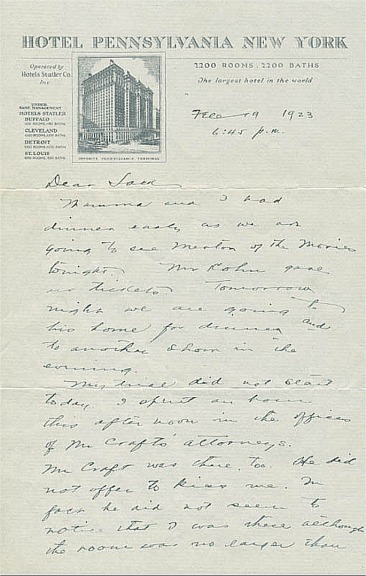 HOTEL PENNSYLVANIA NEW YORK
Operated by
Hotels Statler Co.
Inc
2200 ROOMS 2200 BATHS
The largest hotel in the world
UNDER
SAME MANAGEMENT
HOTELS STATLER
BUFFALO
CLEVELAND
DETROIT
ST. LOUIS
OPPOSITE PENNSYLVANIA TERMINAL
Feb 19 1923
6:45 p.m.
Dear Jack
Mamma and I had
dinner early as we are
going to see Merton of the Movies
tonight. Mr Kohn gave
us tickets. Tomorrow
night we are going to
his home for dinner and
to another show in the
evening.
My trial did not start
today. I spent an hour
this afternoon in the offices
of Mr Crafts' attorneys.
Mr Craft was there, too. He did
not offer to kiss me. In
fact he did not seem to
notice that I was there although
the room was no larger than